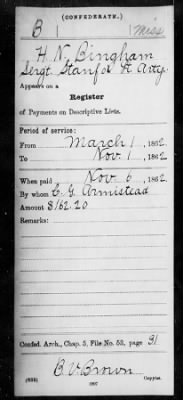 (CONFEDERATE.)
B | 1 | Miss
H. N. Bingham
Sergt. Stanford's Lt. Arty.
Appears on a
Register
of Payments on Descriptive Lists.
Period of service:
From March 1, 1862
To Nov. 1, 1862
When paid Nov. 6, 1862
By whom C. G. Armistead
Amount $162.20
Remarks:
Confed. Arch., Chap. 5, File No. 53, page 31
B. V. Brown
Copyist.